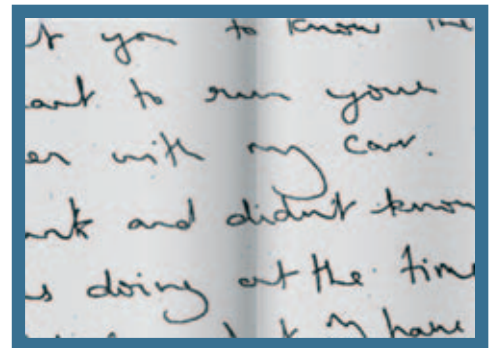 t you to know the
ant to run your
er with my car.
ank and didn't know
s doing at the time
I have